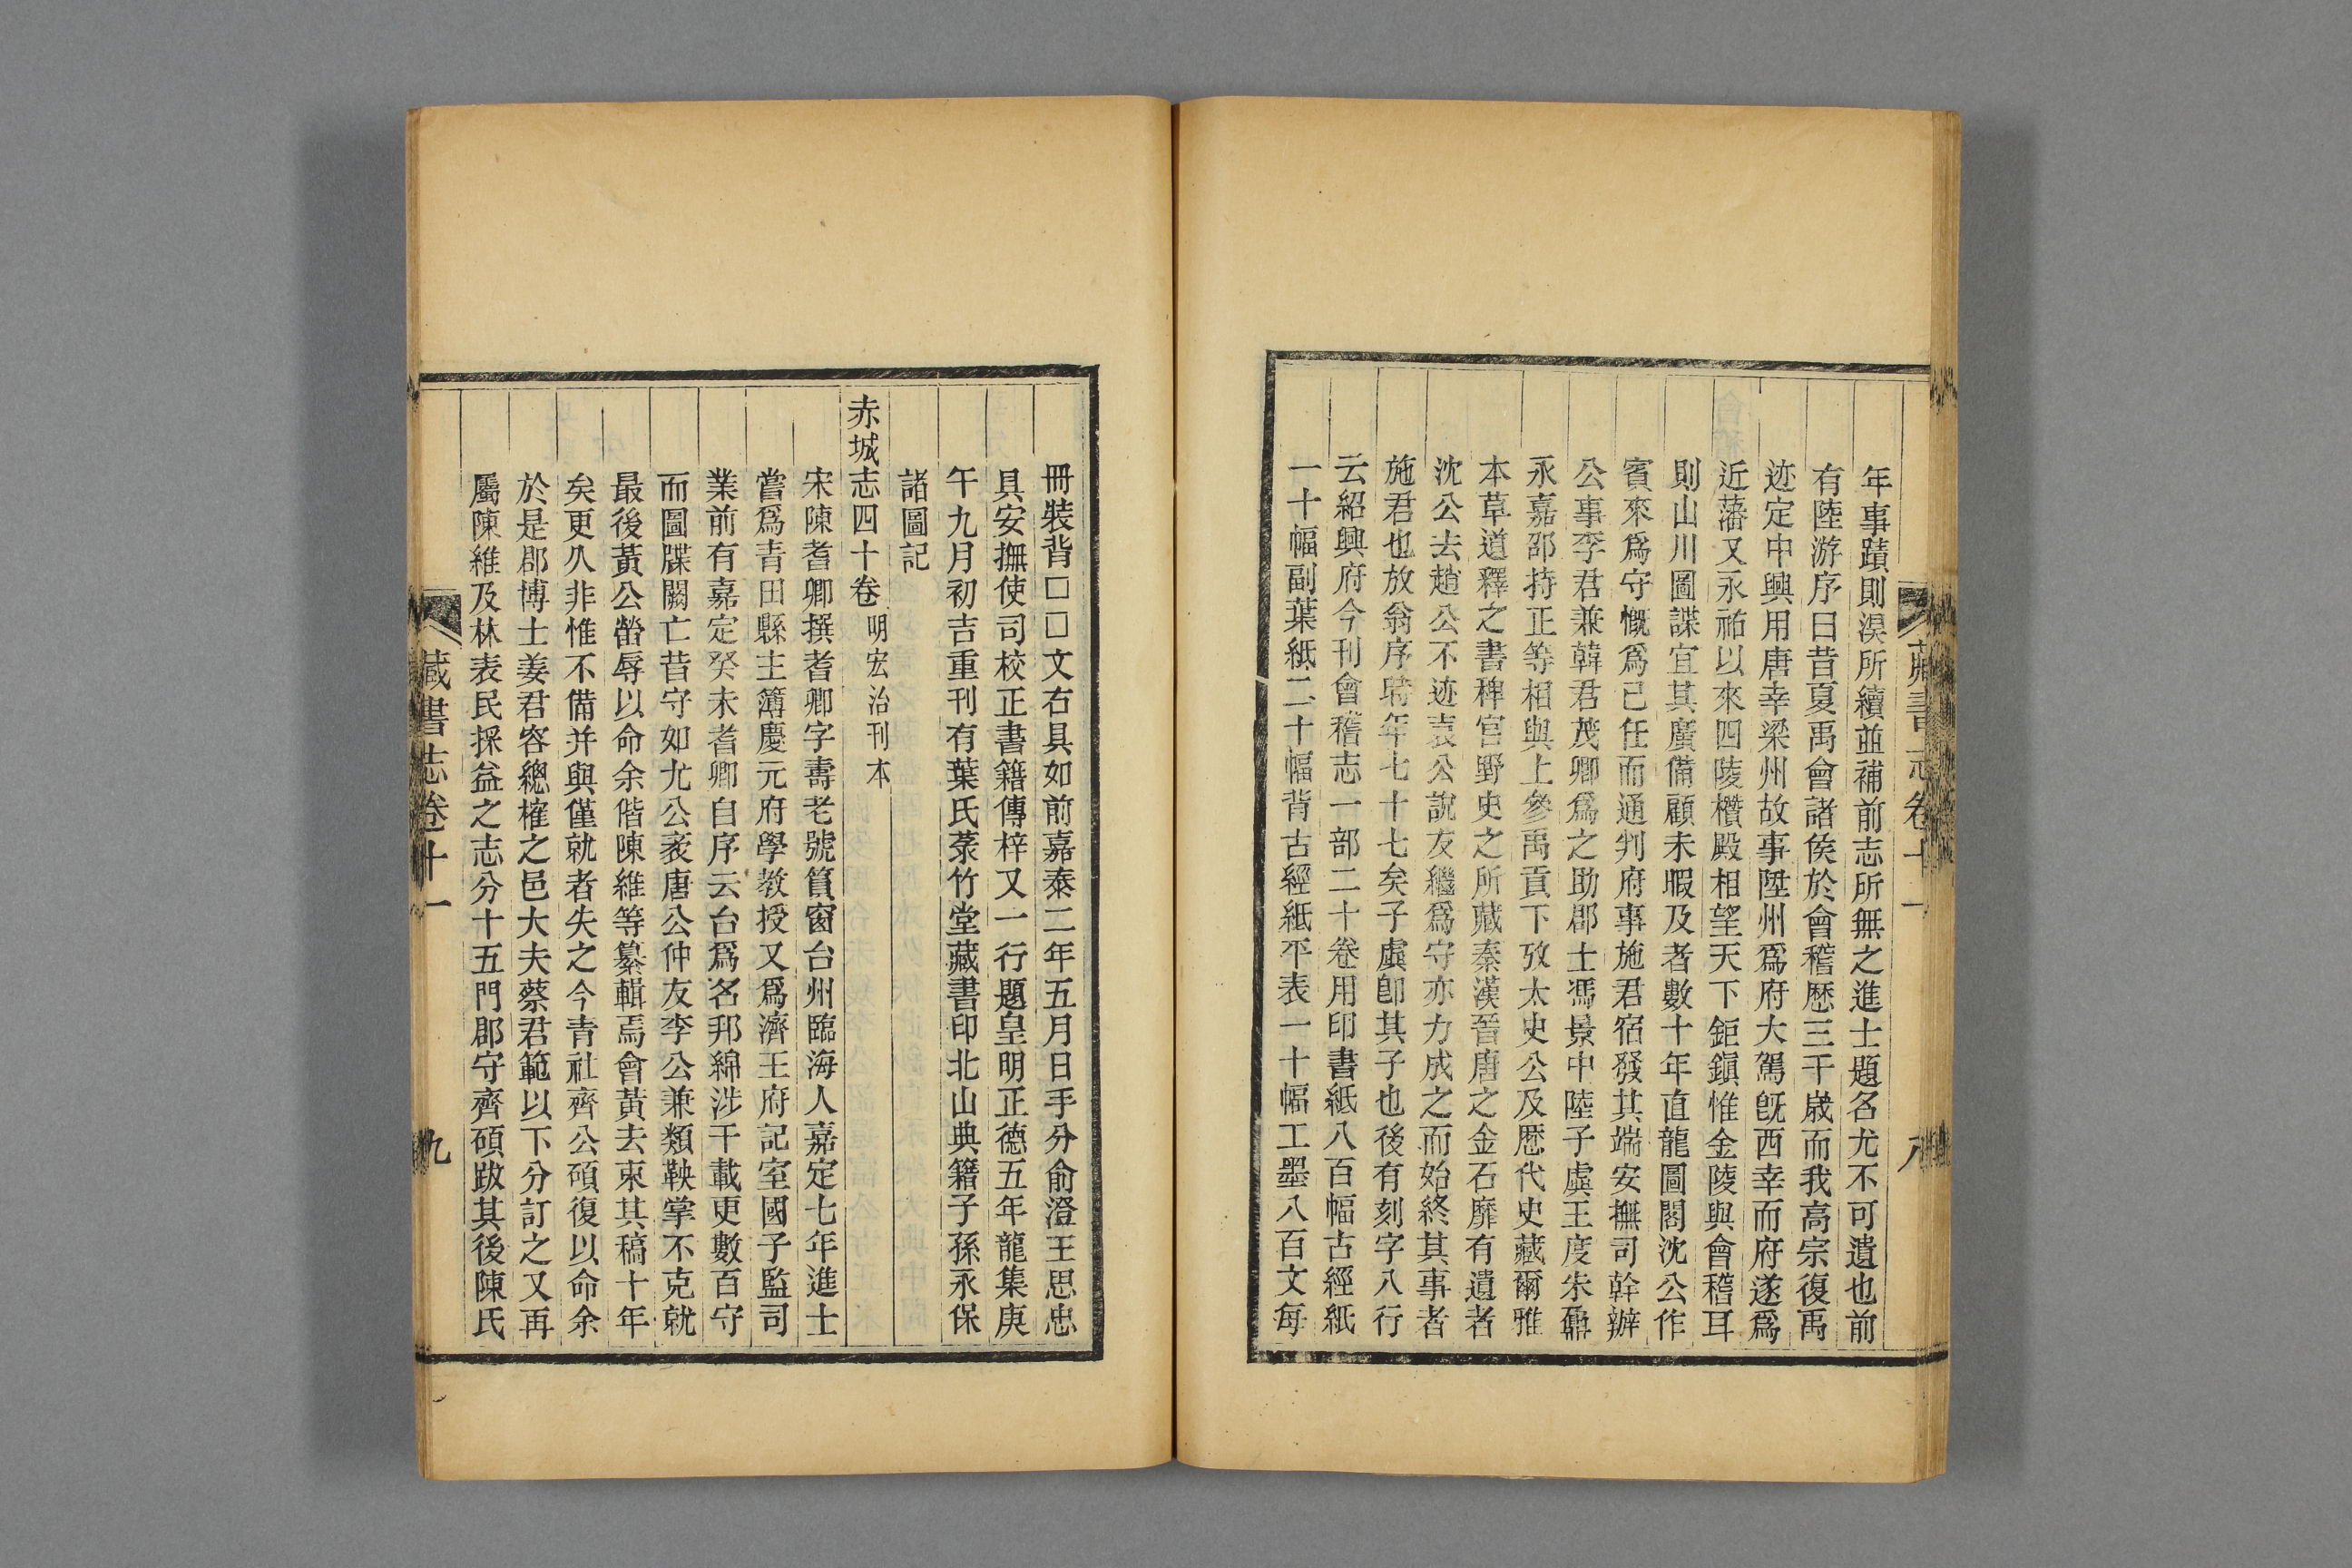 年事蹟則淏所續並補前志所無之進士題名尤不可遺也前
有陸游序曰昔夏禹會諸侯於會稽歷三千歲而我高宗復禹
迹定中興用唐幸梁州故事陞州爲府大駕旣西幸而府遂爲
近藩又永祐以來四陵欑殿相望天下鉅鎭惟金陵與會稽耳
則山川圖諜宜其廣備顧未暇及者數十年直龍圖閣沈公作
賓來爲守慨爲已任而通判府事施君宿發其端安撫司幹辦
公事李君兼韓君茂卿爲之助郡士馮景中陸子虡王度朱鼐
永嘉邵持正等相與上參禹貢下攷太史公及歷代史藏爾雅
本草道釋之書稗官野史之所藏秦漢晉唐之金石靡有遺者
沈公去趙公不迹袁公說友繼爲守亦力成之而始終其事者
施君也放翁序時年七十七矣子虡卽其子也後有刻字八行
云紹興府今刊會稽志一部二十卷用印書紙八百幅古經紙
一十幅副葉紙二十幅背古經紙平表一十幅工墨八百文每
藏書志卷十一
八
冊裝背□□文右具如前嘉泰二年五月日手分俞澄王思忠
具安撫使司校正書籍傳梓又一行題皇明正德五年龍集庚
午九月初吉重刊有葉氏菉竹堂藏書印北山典籍子孫永保
諸圖記
赤城志四十卷 明宏治刊本
宋陳耆卿撰耆卿字壽老號篔窗台州臨海人嘉定七年進士
嘗爲青田縣主簿慶元府學教授又爲濟王府記室國子監司
業前有嘉定癸未耆卿自序云台爲名邦綿涉千載更數百守
而圖牒闕亡昔守如尤公袤唐公仲友李公兼類鞅掌不克就
最後黃公㽦辱以命余偕陳維等纂輯焉會黃去束其稿十年
矣更久非惟不備并與僅就者失之今青社齊公碩復以命余
於是郡博士姜君容總榷之邑大夫蔡君範以下分訂之又再
屬陳維及林表民採益之志分十五門郡守齊碩跋其後陳氏
藏書志卷十一
九